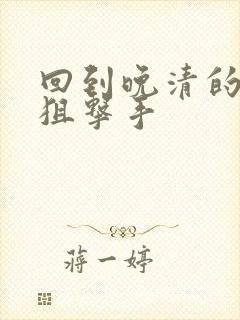 回到晚清的
狙撃手
蒋一婷